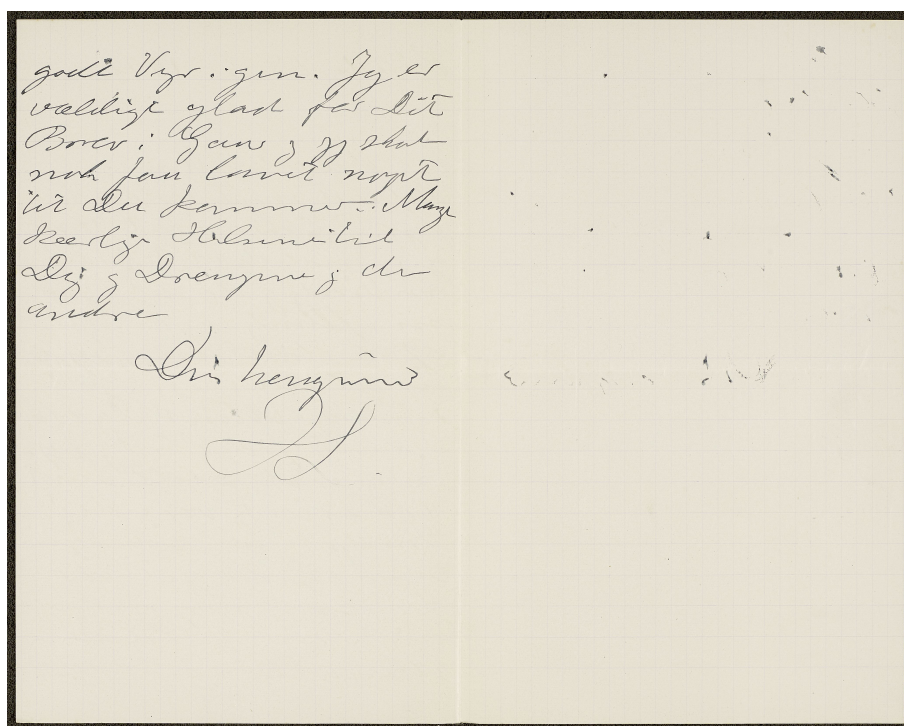 godt Vejr igen. Jeg er
vældigt glad for Dit
Brev i Gaar og jeg skal
nok faa lavet noget
til Du kommer. Mange
Kærlige Hilsner til
Dig og Drengene og de
andre
Din hengivne